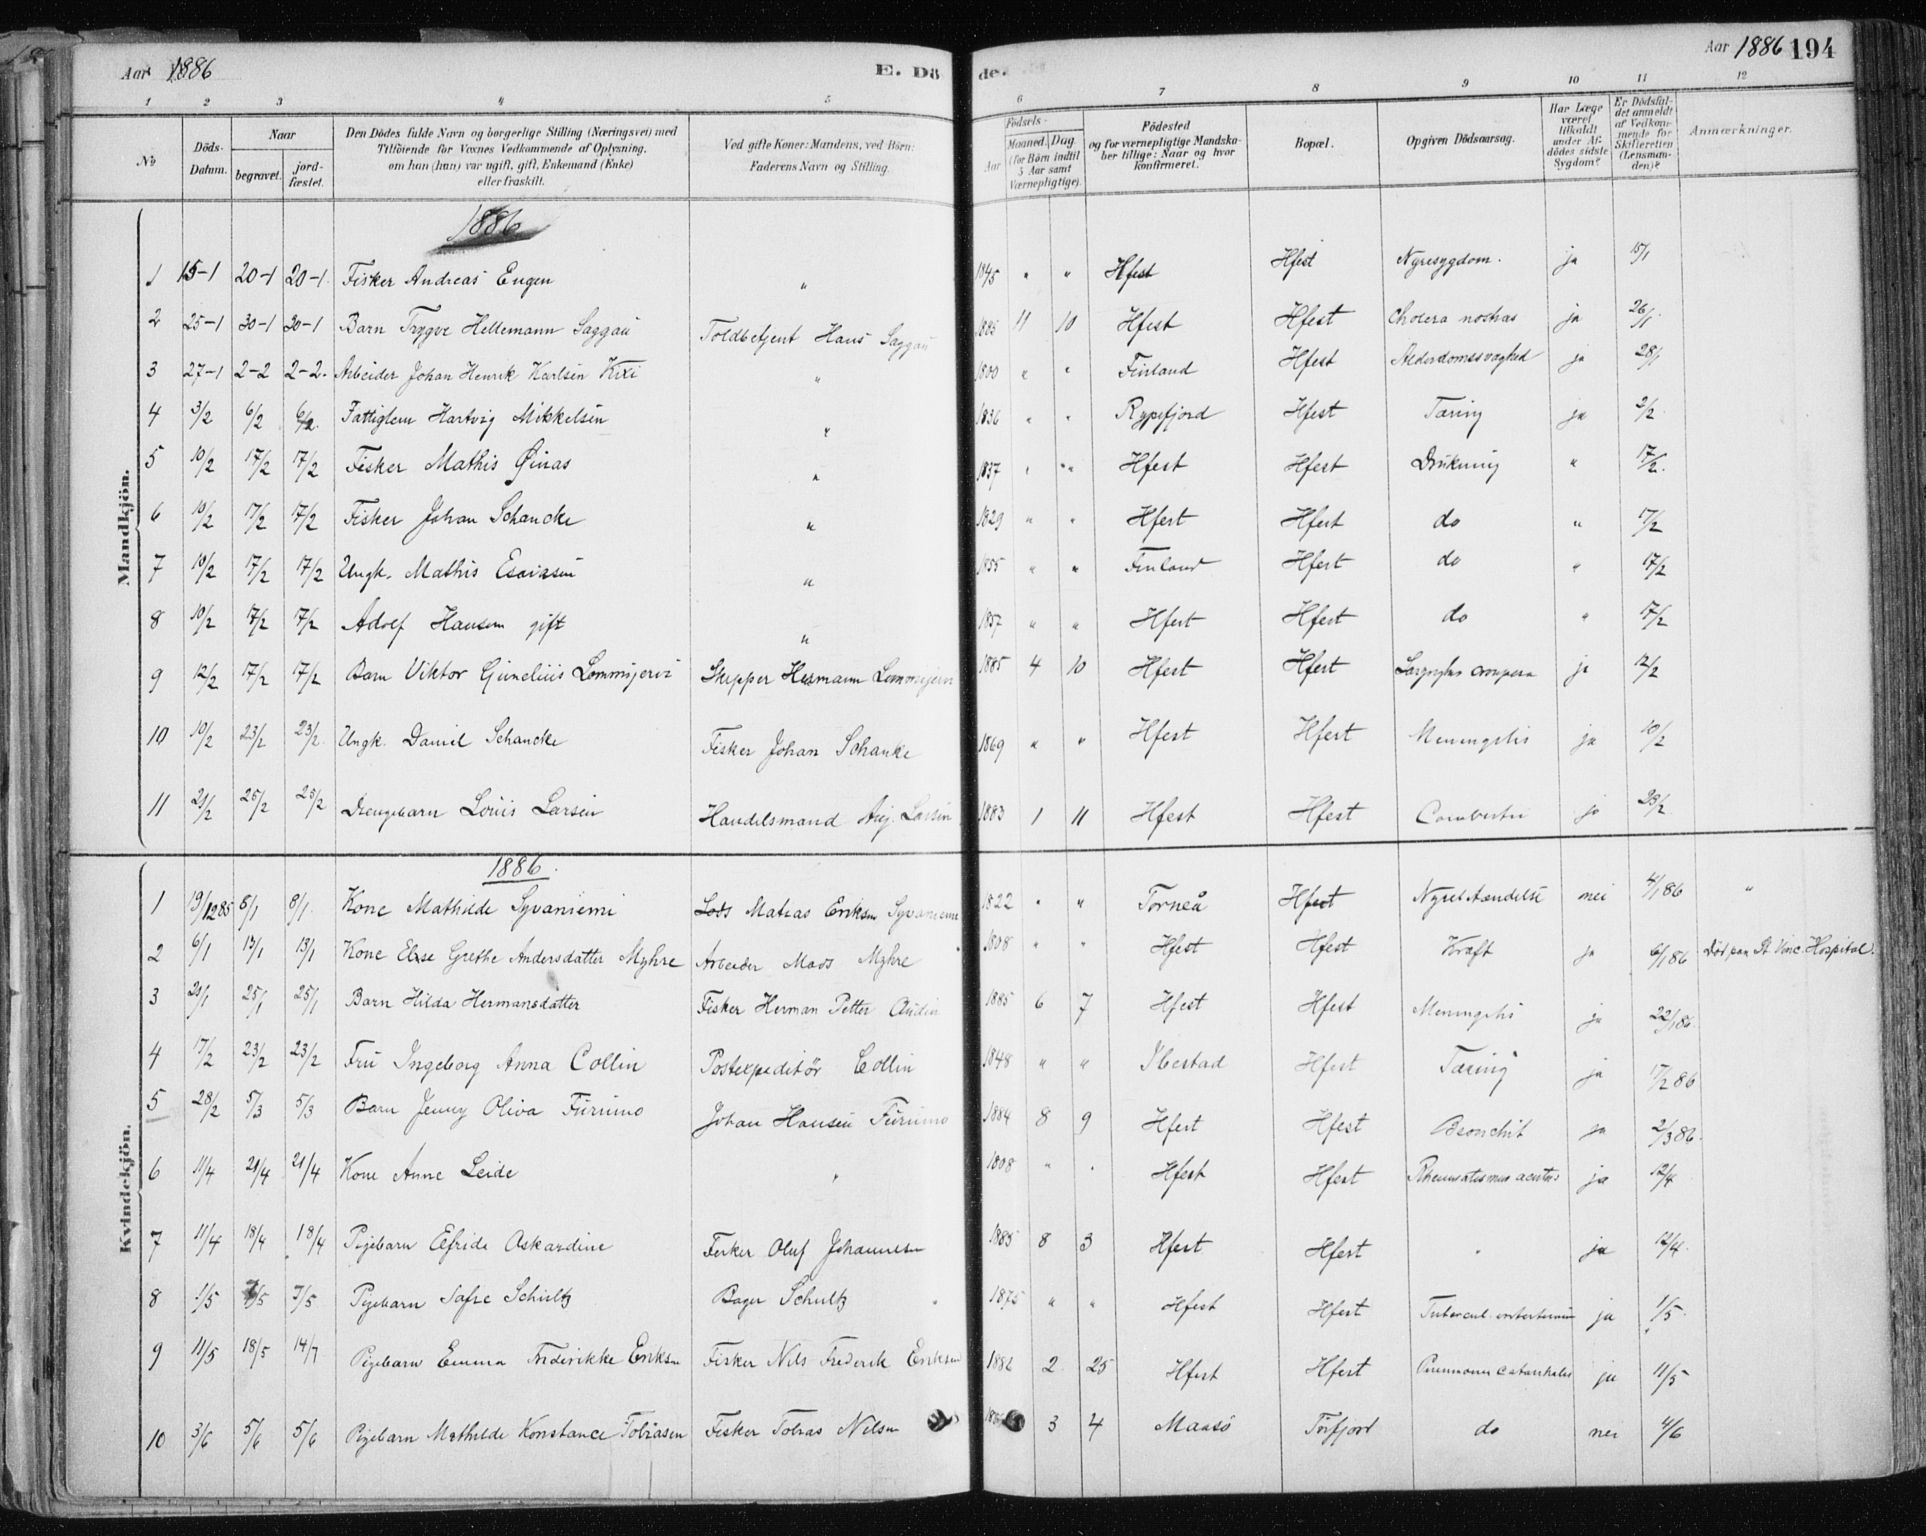 Aar 1886 E. Dö de. Aar 1886 194
1 2 3 4 5 6 7 8 9 10 11 12
No Döds-Datum. Naar begravet. jord-fæstet. Den Dödes fulde Navn og borgerlige Stilling (Næringsvei) med Tilföiende for Voxnes Vedkommende af Oplysning, om han (hun) var ugift, gift, Enkemand (Enke) eller fraskilt. Ved gifte Koner: Mandens, ved Börn: Faderens Navn og Stilling. Födsels- Aar Maaned. Dag. (for Börn indtil 5 Aar samt Værnepligtige). Födested og for værnepligtige Mandskaber tillige: Naar og hvor konfirmeret. Bopæl. Opgiven Dödsaarsag. Har Læge været tilkaldt under Afdödes sidste Sygdom? Er Dödsfaldet anmeldt af Vedkommende for Skifteretten (Lensmanden)? Anmærkninger.
Mandkjön.
1886
1 15-1 20-1 20-1 Fisker Andreas Eugen " 1845 " " Hfest Hfest Nyresygdom. ja 15/1
2 25-1 30-1 30-1 Barn Trygve Hellemann Saggau Toldbetjent Hans Saggau 1885 11 10 Hfest Hfest Cholera nostras ja 26/1
3 27-1 2-2 2-2. Arbeider Johan Henrik Karlsen Kixi " 1800 " " Finland Hfest Alderdomssvaghed ja 28/1
4 3/2 6/2 6/2. Fattiglem Hartvig Mikkelsen " 1836 " " Rypefjord Hfest Tæring ja 2/2
5 10/2 17/2 17/2 Fisker Mathis Øinas " 1837 " " Hfest Hfest Drukning " 17/2.
6 10/2 17/2 17/2 Fisker Johan Schancke " 1829 " " Hfest Hfest do " 17/2
7 10/2 17/2 17/2 Ungk. Mathis Esaiasen " 1855 " " Finland Hfest do " 17/2
8 10/2 17/2 17/2 Adolf Hansen gift " 1857 " " Hfest Hfest do " 17/2
9 12/2 17/2 17/2 Barn Viktor Lommijervi Skipper Hermann Lommijervi 1885 4 10 Hfest Hfest ja 12/2
10 10/2 23/2 23/2. Ungk. Daniel Schancke Fisker Johan Schanke 1869 " " Hfest Hfest Meningitis ja 10/2
11 21/2 25/2 25/2 Drengebarn Louis Larsen Handelsmand Larsen 1883 1 11 Hfest Hfest ja 23/2
Kvindekjön.
1886.
1 19/12 85 8/1 8/1. Kone Mathilde Syvaniemi Lods Matias Eriksen Syvaniemi 1822 " " Torneå Hfest nei 4/1 86 "
2 6/1 13/1 13/1 Kone Else Grethe Andersdatter Myhre Arbeider Mads Myhre 1808 " " Hfest Hfest Kræft ja 6/1 86 Död paa St. Vinc. Hospital.
3 20/1 25/1 25/1 Barn Hilda Hermansdatter Fisker Herman Petter 1885 6 7 Hfest Hfest Meningitis ja 22/1 86.
4 17/2 23/2 23/2 Fru Ingeborg Anna Collin Postexpeditör Collin 1848 " " Ibestad Hfest Tæring ja 17/2 86
5 28/2 5/3 5/3 Barn Jenny Oliva Furumo Johan Hansen Furumo 1884 8 9 Hfest Hfest Bronchit ja 2/3 86.
6 11/4 21/4 21/4 Kone Anne Leide " 1808 " " Hfest Hfest Rheumatismus acutus ja 12/4
7 11/4 18/4 18/4 Pigebarn Elfride Oskardine Fisker Oluf Johannesen 1885 8 3 Hfest Hfest " ja 12/4.
8 1/5 7/5 7/5. Pigebarn Sofie Schultz Bager Schultz 1875 " " Hfest Hfest ja 1/5.
9 11/5 18/5 14/7 Pigebarn Emma Frederikke Eriksen Fisker Nils Frederik Eriksen 1886 2 25 Hfest Hfest ja 11/5
10 3/6 5/6 5/6 Pigebarn Mathilde Konstance Tobiasen Fisker Tobias Nilsen 3 4 Maasö Torfjord do nei 4/6